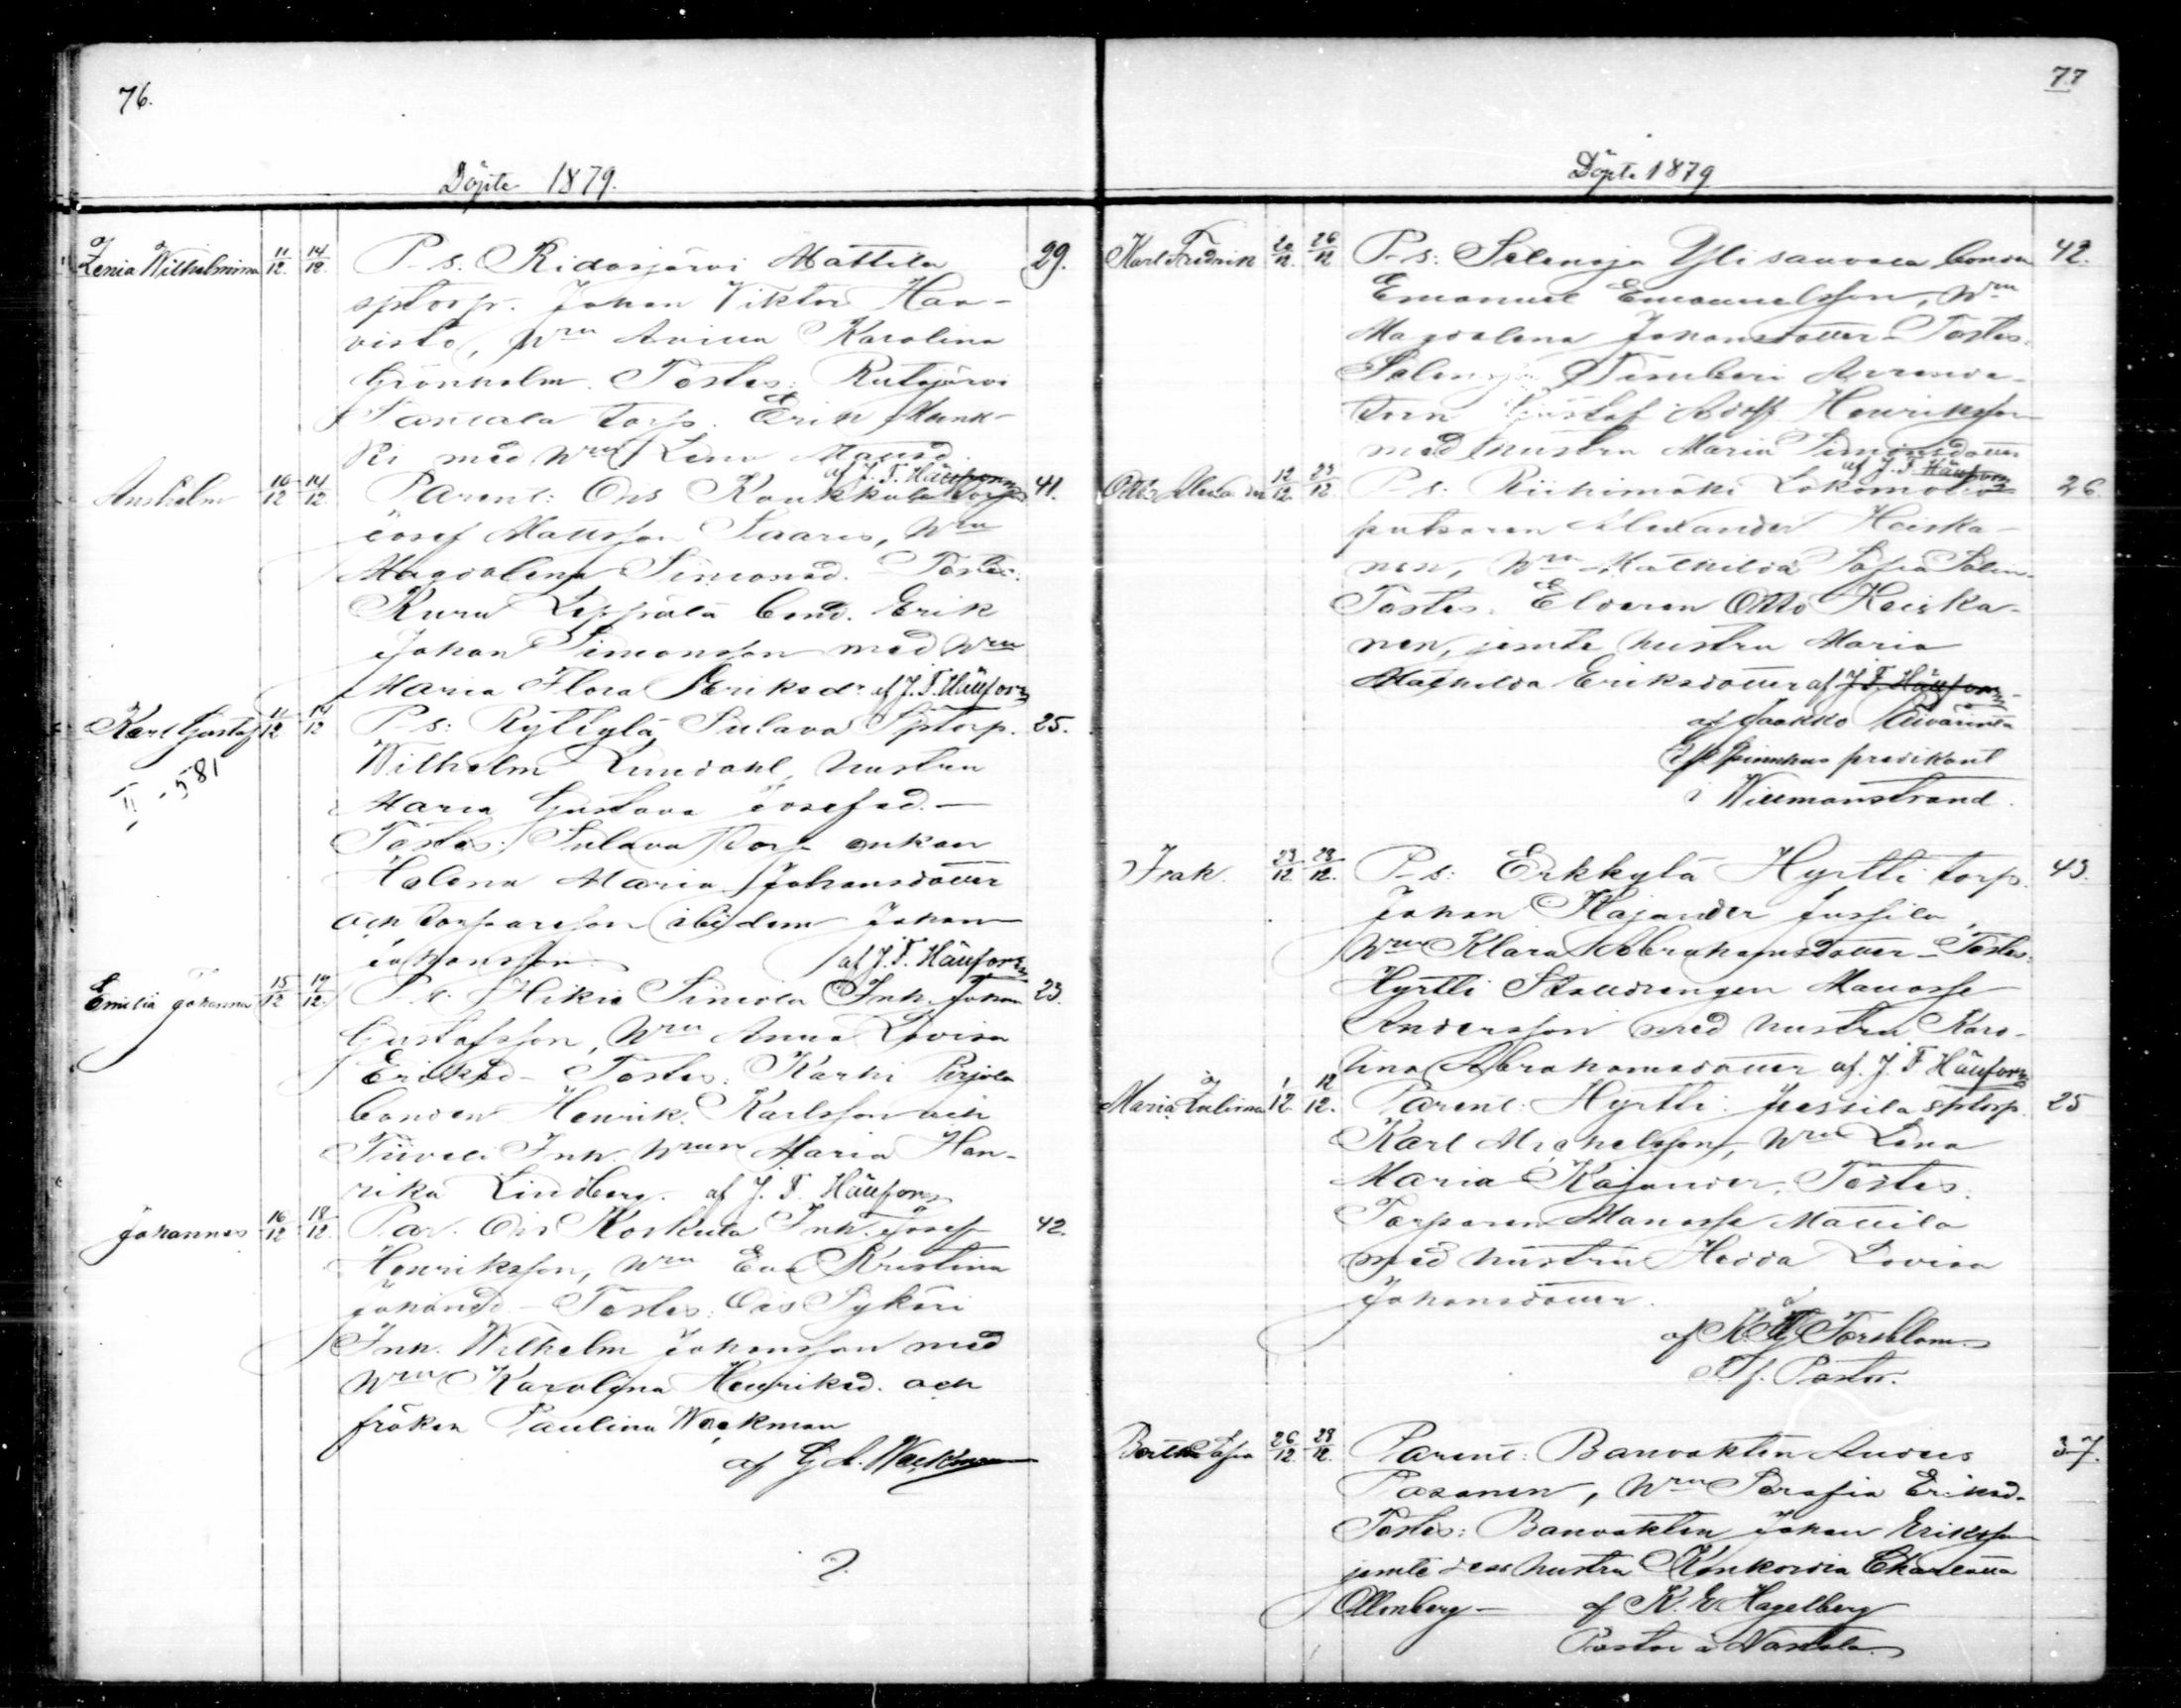 76.
Döpte 1879.
Zenia Wilhelmina 11/12. 14/12. P-s. Ridasjärvi Mattila 29.
sptorp. Johan Viktor Haa-
visto, Hru Karolina
Grönholm. Testes: Rutajärvi
torp. Erik Munk-
ki med Hru Lena Mattsd.
af J. F. Hällfors
Anshelm 10/12 14/12 Parent: Ois Koukkula torp. 41.
Josef Mattsson Saaris, Hru
Magdalena Simonsd. - Testes:
Kuru Leppälä bond. Erik
Johan Simonsson med Hru
Maria Flora Eriksdr af J. F. Hällfors
Karl Gustaf 11/12 14/12 P-s: Rytkylä Sulava Sptorp. 25.
II - 581
Wilhelm Lindahl, hustru
Maria Gustava Josefsd. -
Testes: Sulava torp. enkan
Helena Maria Johansdotter
och torpareson ibidem Johan
Johansson. af J. F. Hällfors
Emilia Johanna 15/12 17/12. P-s. Hikiä Simola Inh. Johan 23.
Gustafsson, Hru Anna Lovisa
Eriksd - Testes: Karhi Perjola
bonden Henrik Karlsson och
Inh. Hrun Maria Hen-
rika Lindberg. af J. F. Hällfors
Johannes 16/12 18/12 Par. Ois Koskula Inh. Josef 42.
Henriksson, Hru Eva Kristina
Johansd. - Testes: Ois Sykäri
Inh. Wilhelm Johansson med
Hru Karolina Henriksd. och
fröken Paulina Wackman
af G. A. Wackman
2.
77
Döpte 1879
Karl Fredrik 20/12. 26/12 P-s: Selensja Ylisauvala bonden 42.
Emanuel Emanuelsson, Hru
Magdalena Johansdotter - Testes:
Selensja Arrenda-
torn Gustaf Adolf Henriksson
med hustru Maria Simonsdotter
af J. F. Hällfors
Otto Alexander 12/12. 23/12. P-s. Riihimäki Lokomotiv- 26.
putsaren Alexander Heiska-
nen, Hru Mathilda Sofia Salin.
Testes. Eldaren Otto Heiska-
nen, jemte hustru Maria
Mathilda Eriksdotter af J. F. Hällfors
af Jaakko Päivärinta
Spinnhus predikant
i Willmanstrand.
Isak. 23/12 28/12. P-s: Erkkylä Hyrtti torp. 43.
Johan Kajander Jussila,
Hru Klara Abrahamsdotter - Testes:
Hyrtti Stalldrengen Manasse
Andersson med hustru Karo-
lina Abrahamsdotter af. J. F. Hällfors
Maria Julina 1/12 12/12. Parent: Hyrtti Jussila sptorp. 25
Karl Michelsson, Hru Lena
Maria Kajander. Testes:
Torparen Manasse Mattila
med hustru Hedda Lovisa
Johansdotter.
af K. G. Forsblom
T. f. Pastor.
Bertha Sofia 26/12. 28/12. Parent: Banvakten Anders 37.
Pasanen, Hru Serafia Eriksd.
Testes: Banvakten Johan Eriksson
jemte dess hustru Konkordia Charlotta
Ollenberg - af K. E. Hagelberg
Pastor i Nastola.